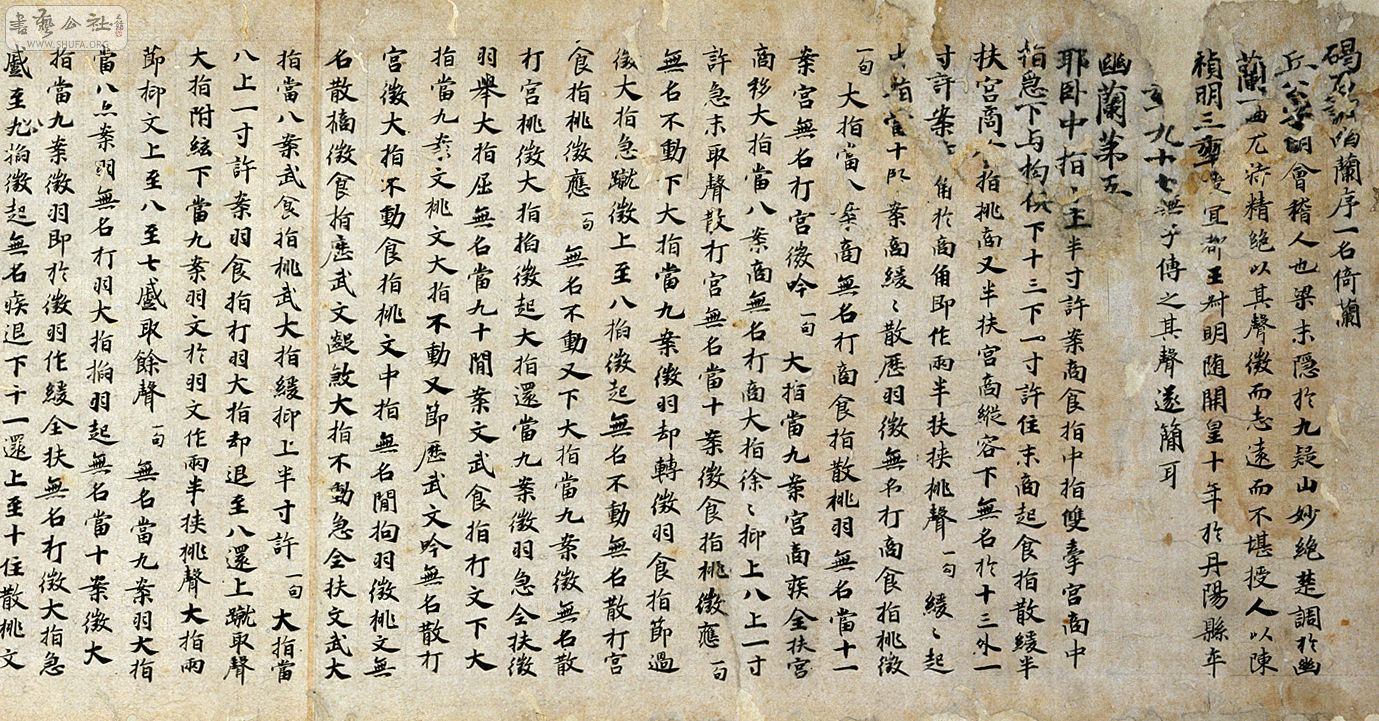 書藝公社
WWW.SHUFA.ORG
碣石調幽蘭序一名倚蘭
丘公字明會稽人也梁末隱於九疑山妙絕楚調於幽
蘭一曲尤特精絕以其聲微而志遠而不堪授人以陳
禎明三年授宜都王叔明隨開皇十年於丹陽縣年
九十七無子傳之其聲遂簡耳
幽蘭第五
耶臥中指半寸許案商食指中指雙牽宮商中
指急下与拘俱下十三下一寸許住末商起食指散緩半
扶宮商食指挑商又半扶宮商縱容下無名於十三外一
寸許案商角於商角即作兩半扶挾挑聲一句緩〻起
無名散宮十 案商緩〻散歷羽徵無名打商食指挑徵
一句大指當八案商無名打商食指散挑羽無名當十一
案宮無名打宮徵吟一句大指當九案宮商疾全扶宮
商移大指當八案商無名打商大指徐〻抑上八上一寸
許急末取聲散打宮無名當十案徵食指挑徵應一句
無名不動下大指當九案徵羽却轉徵羽食指節過
徵大指急蹴徵上至八掐徵起無名不動無名散打宮
食指挑徵應一句無名不動又下大指當九案徵無名散
打宮桃徵大指掐徵起大指還當九案徵羽急全扶徵
羽舉大指屈無名當九十間案文武食指打文下大
指當九案文桃文大指不動又節歷武文吟無名散打
宮徵大指不動食指桃文中指無名間拘羽徵桃文無
名散摘徵食指歷武文齪煞大指不動急全扶文武大
指當八案武食指桃武大指緩抑上半寸許一句大指當
八上一寸許案羽食指打羽大指却退至八還上蹴取聲
大指附絃下當九案羽文於羽文作兩半挾桃聲大指兩
節抑文上至八至七蹙取餘聲一句無名當九案羽大指
當八上案羽無名打羽大指掐羽起無名當十案徵大
指當九案徵羽即於徵羽作緩全扶無名打徵大指急
蹙至八掐徵起無名疾退下十一還上至十住散桃文